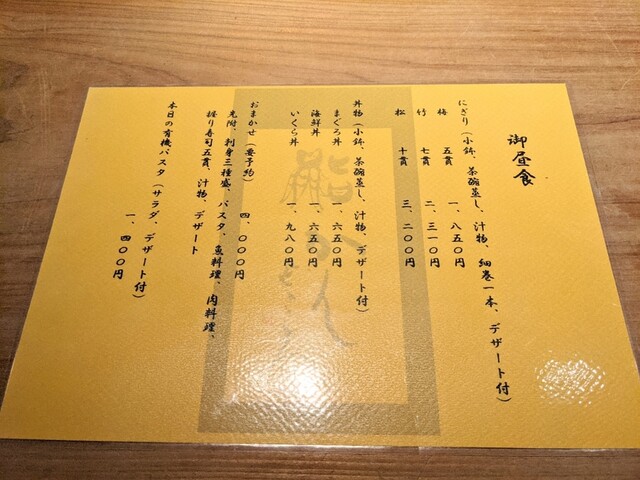 御昼食
にぎり（小鉢、茶碗蒸し、汁物、細巻一本、デザート付）
梅 五貫 一、八五〇円
竹 七貫 二、三一〇円
松 十貫 三、二〇〇円
丼物（小鉢、茶碗蒸し、汁物、デザート付）
まぐろ丼 一、六五〇円
海鮮丼 一、六五〇円
いくら丼 一、九八〇円
おまかせ（要予約） 四、〇〇〇円
先附、刺身三種盛、パスタ、魚料理、肉料理、
握り寿司五貫、汁物、デザート
本日の有機パスタ（サラダ、デザート付）
一、四〇〇円